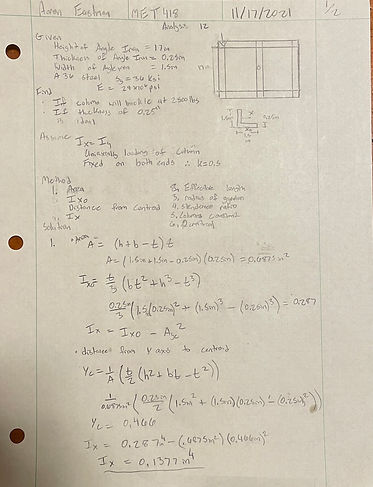 Aaron Eastman MET 418 11/17/2021 1/2
Analysis 12
Given
Height of Angle Iron = 17in
Thickness of Angle Iron = 0.25in
Width of Angle iron = 1.5in
A 36 steel Sy = 36 ksi
E = 29x10⁶ psi
17in
Find
· If column will buckle at 2500 lbs
· If thickness of 0.25"
is ideal
1.5in
0.25in
1.5
in
Assume Ix = Iy
loading of column
Fixed on both ends ∴ k=0.5
Method
1. Area
Ixo
Distance from centroid
Ix
Effective length
radius of gyration
4. slenderness ratio
5. column constant
6. Pcritical
Solution
1. • Area
A = (h+b-t)t
A = (1.5in+1.5in-0.25in)(0.25in) = 0.6875in²
Ixo = t/3 (bt²+h³-t³)
0.25in/3 (1.5(0.25in)² + (1.5in)³ - (0.25in)³) = 0.287
Ix = Ixo - Ayc²
• distance from Y axis to centroid
Yc = 1/A (t/2 (h²+bt-t²))
1/0.6875in² (0.25in/2 (1.5in² + (1.5in)(0.25in) - (0.25in)²))
Yc = 0.466
Ix = 0.287⁴ - (.6875in²)(0.466in)²
Ix = 0.1377in⁴